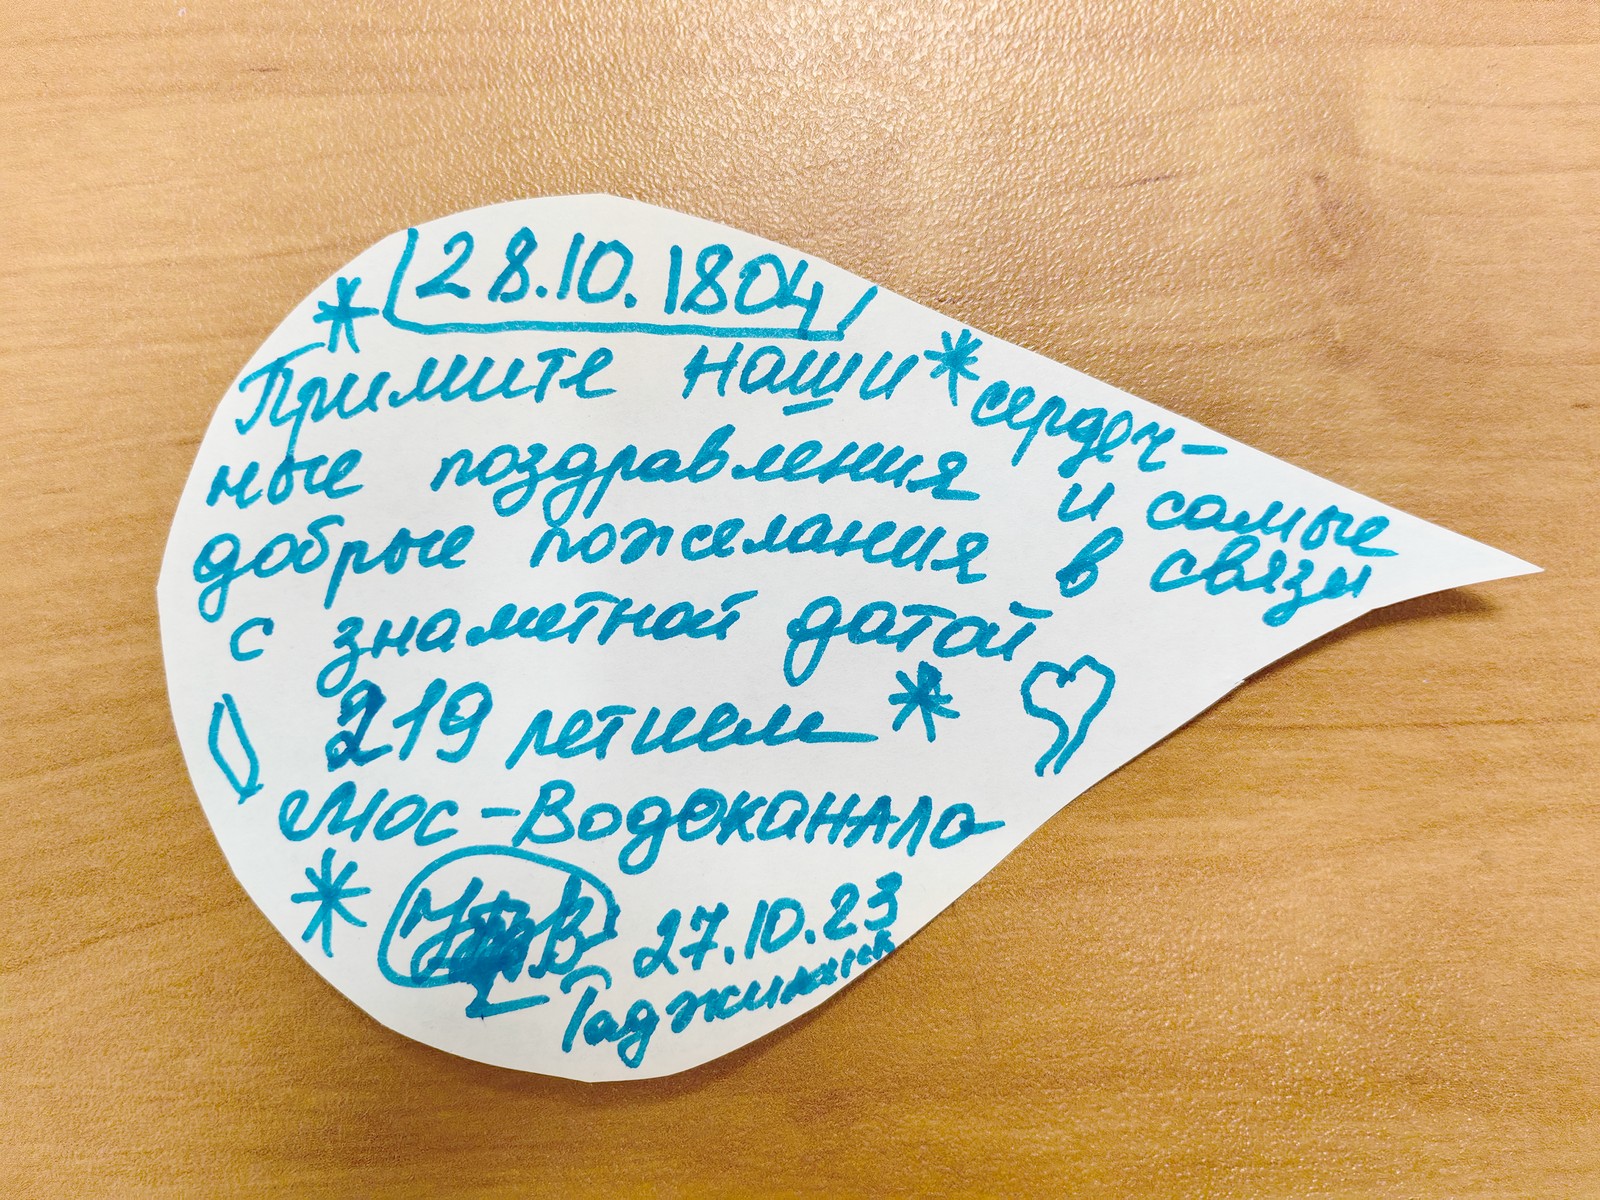 28.10.1804
Примите наши сердеч-
ные поздравления и самые
добрые пожелания в связи
с знаметной датой
219 летием
Мос-Водоканала
27.10.23